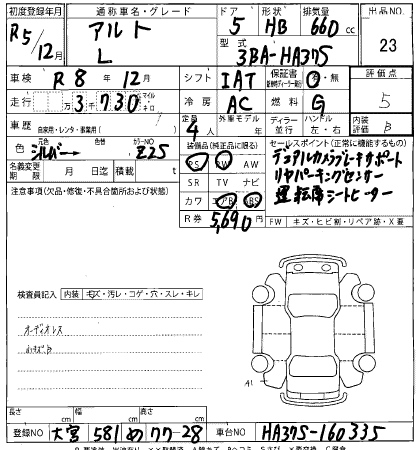 初度登録年月 通称車名・グレード ドア 形状 排気量 出品NO.
R5/12月 アルト L 5 HB 660cc 23
型式 3BA-HA37S
車検 R8年12月 シフト IAT 保証書 有・無 評価点
走行 3万730 マイル キロ 冷房 AC 燃料 G 5
車歴 自家用・レンタ・事業用( ) 定員 4人 外車モデル 年 ディーラー 並行 ハンドル 左・右 内装評価 B
色 元色 シルバー 色替 カラーNO Z25 装備品(純正品に限る) セールスポイント(正常に機能するもの)
PS PW AW デュアルカメラブレーキサポート
名義変更期限 月 日迄 積載 t SR TV ナビ リヤパーキングセンサー
注意事項(欠品・修復・不具合箇所および状態) カワ エアB ABS 運転席シートヒーター
R券 5,690円 FW キズ・ヒビ割・リペア跡・X要
検査員記入 内装 キズ・汚レ・コゲ・穴・スレ・キレ
オーディオレス
内キズB
A1
長さ cm 幅 cm 高さ cm
登録NO 大宮 581 め 77-28 車台NO HA37S-160335